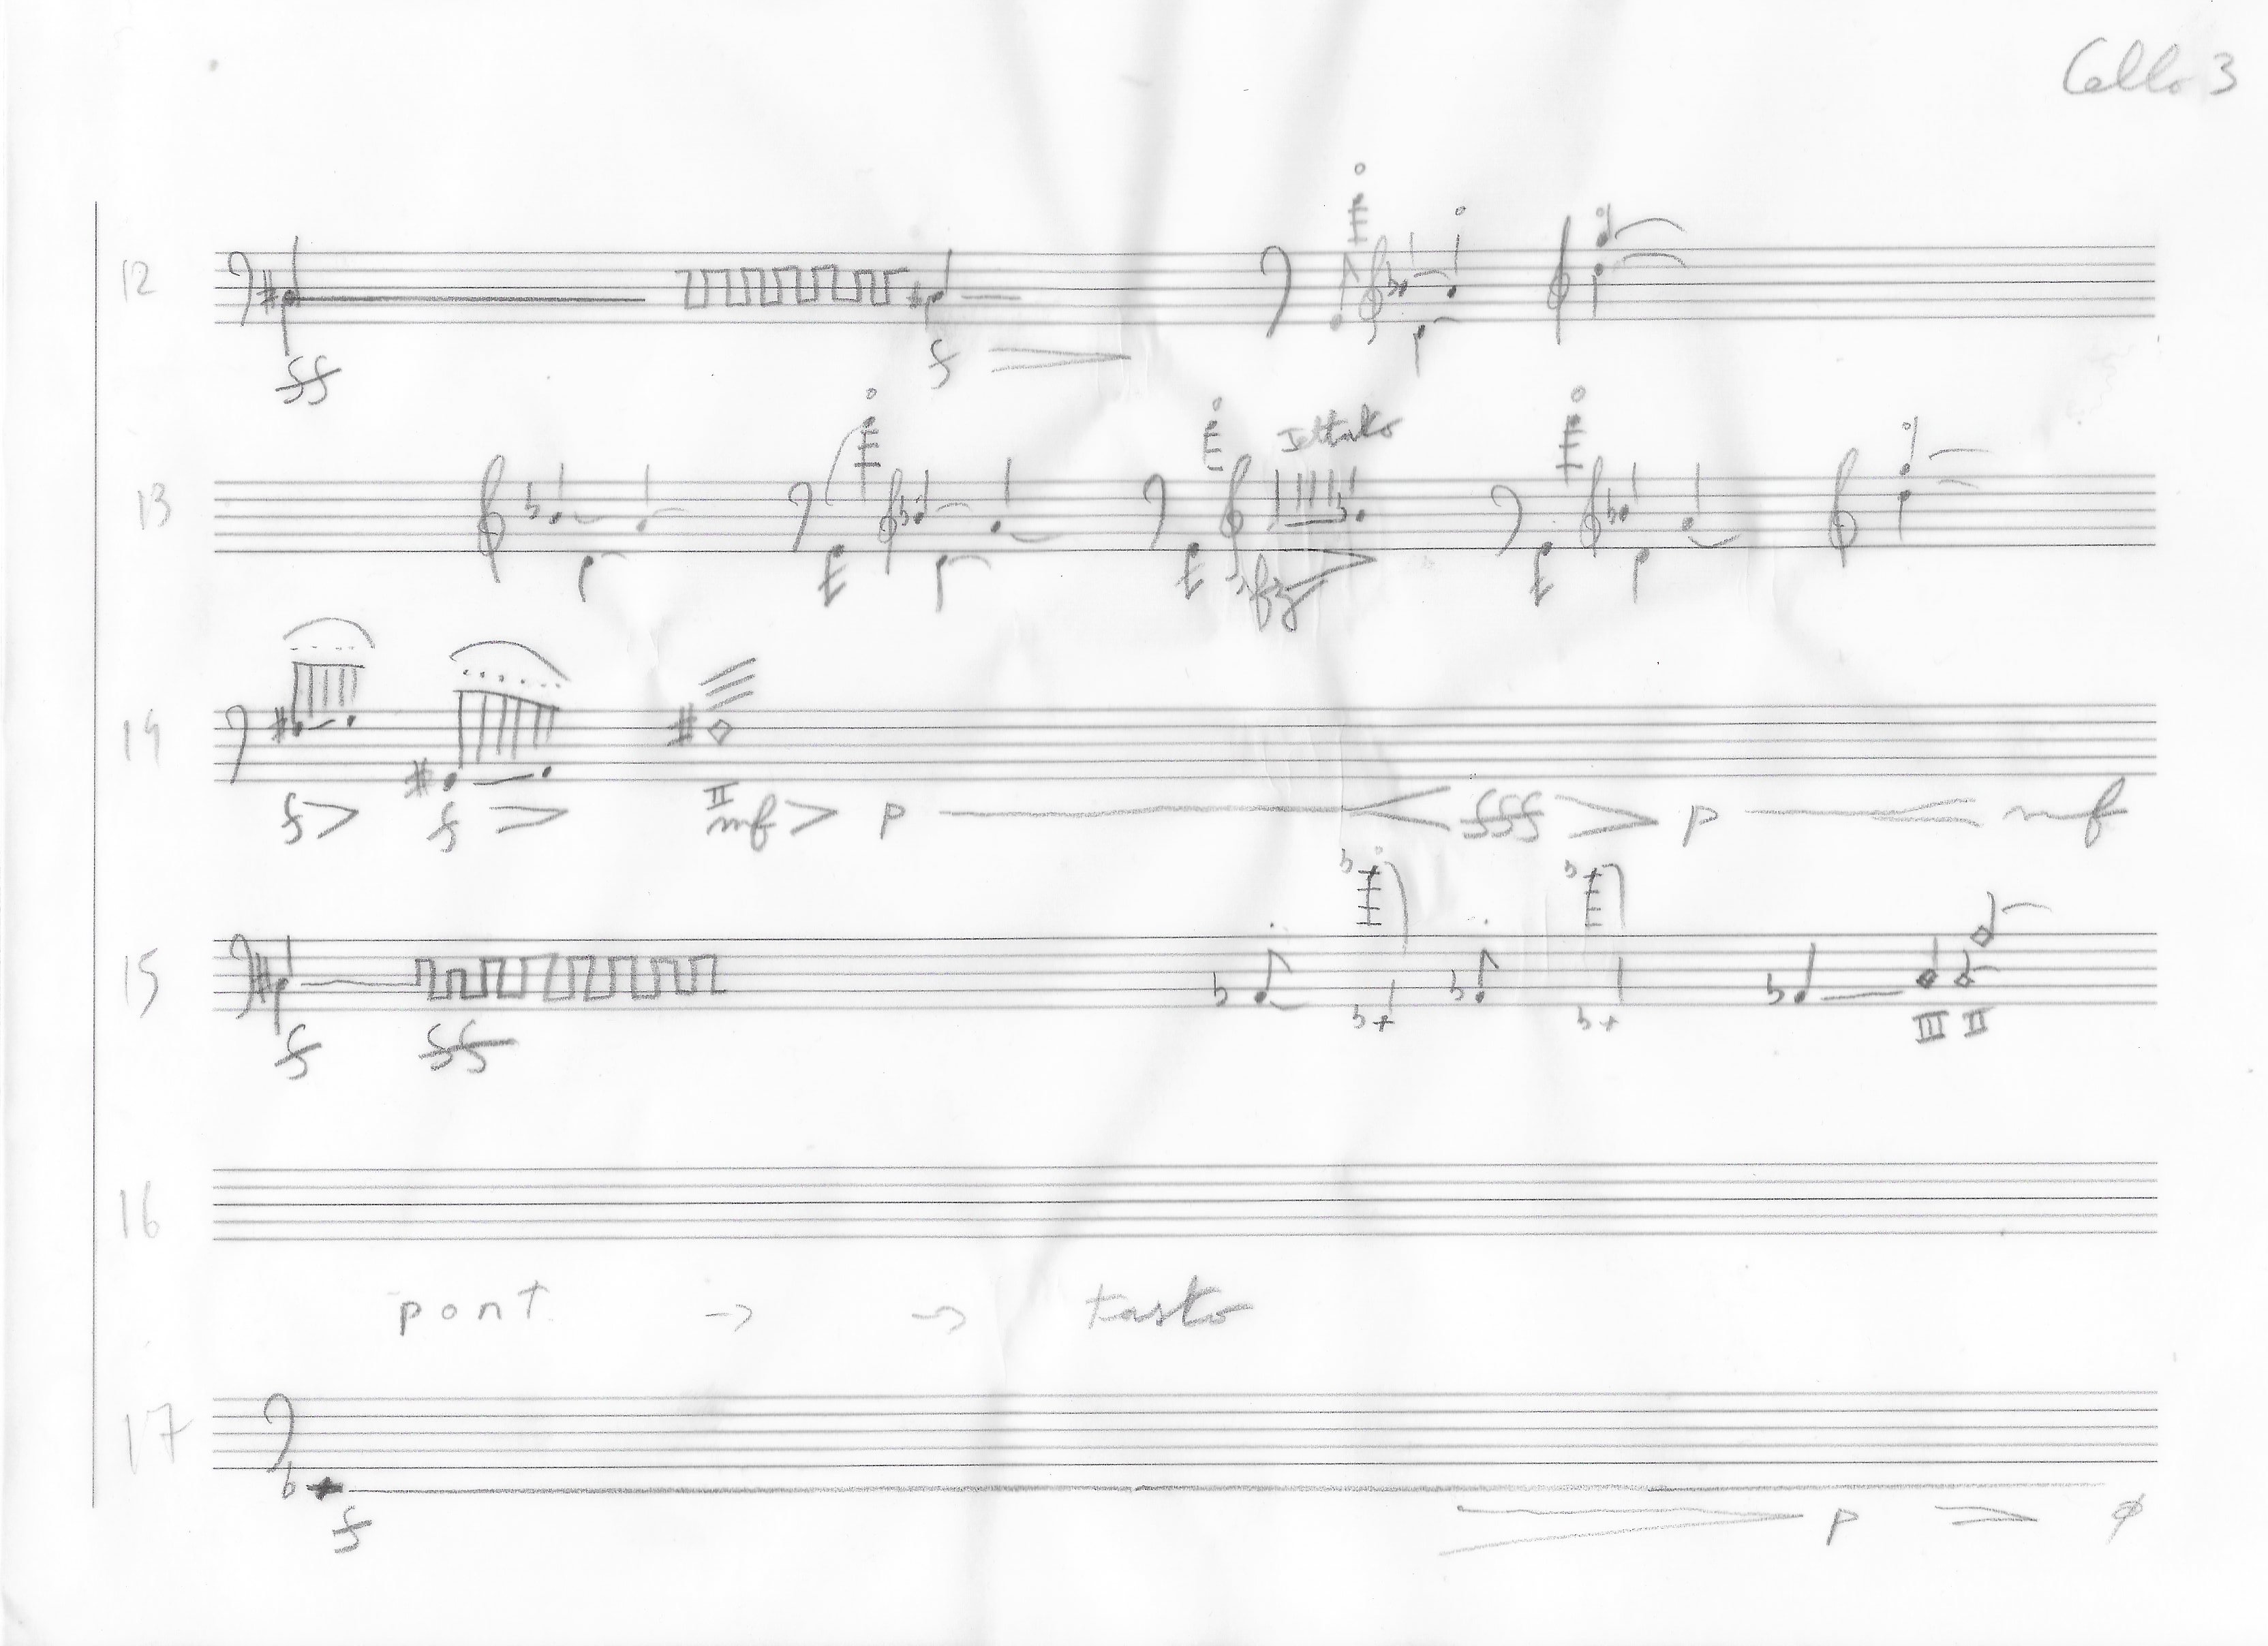 Cello 3
12
ff
f
13
Jettato
sfz
14
f f II
mf p fff p mf
15
f ff III II
16
pont. → → tasto
17
f p ø